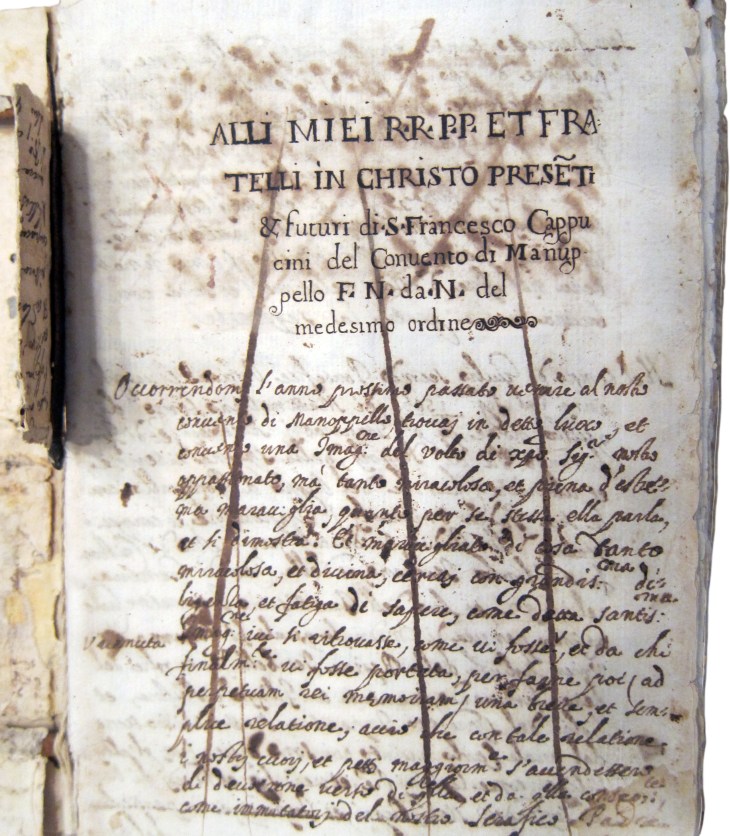 ALLI MIEI R·R·P·P· ET FRA
TELLI IN CHRISTO PRESẼTI
& futuri di S. Francesco Cappu
cini del Conuento di Manup-
pello F. N. da N. del
medesimo ordine
Occorrendomi l'anno prossimo passato uenire al nostro
conuento di Manoppello, trouai in detto luoco, et
conuento una Imag.ne del Volto di xpõ Sig.re nostro
appassionato, mà tanto miracolosa, et piena d'estre-
ma marauiglia quanto per se stessa ella parla,
et si dimostra. Et marauigliato di cosa tanto
miracolosa, et diuina, cercai con grandis.ma di-
ligenza, et fatiga di sapere, come detta santis.ma
Imag.ne iui si ritrouasse, come ui fosse uenuta, et da chi
finalm.te ui fosse portata, per farne poi (ad
perpetuam rei memoriam) una breue, et sem-
plice relatione, acciò che con tale relatione,
i nostri cuori, et petti maggiorm.te s'accendessero
di deuotione uerso di
come immitatori del nostro Serafico Padre